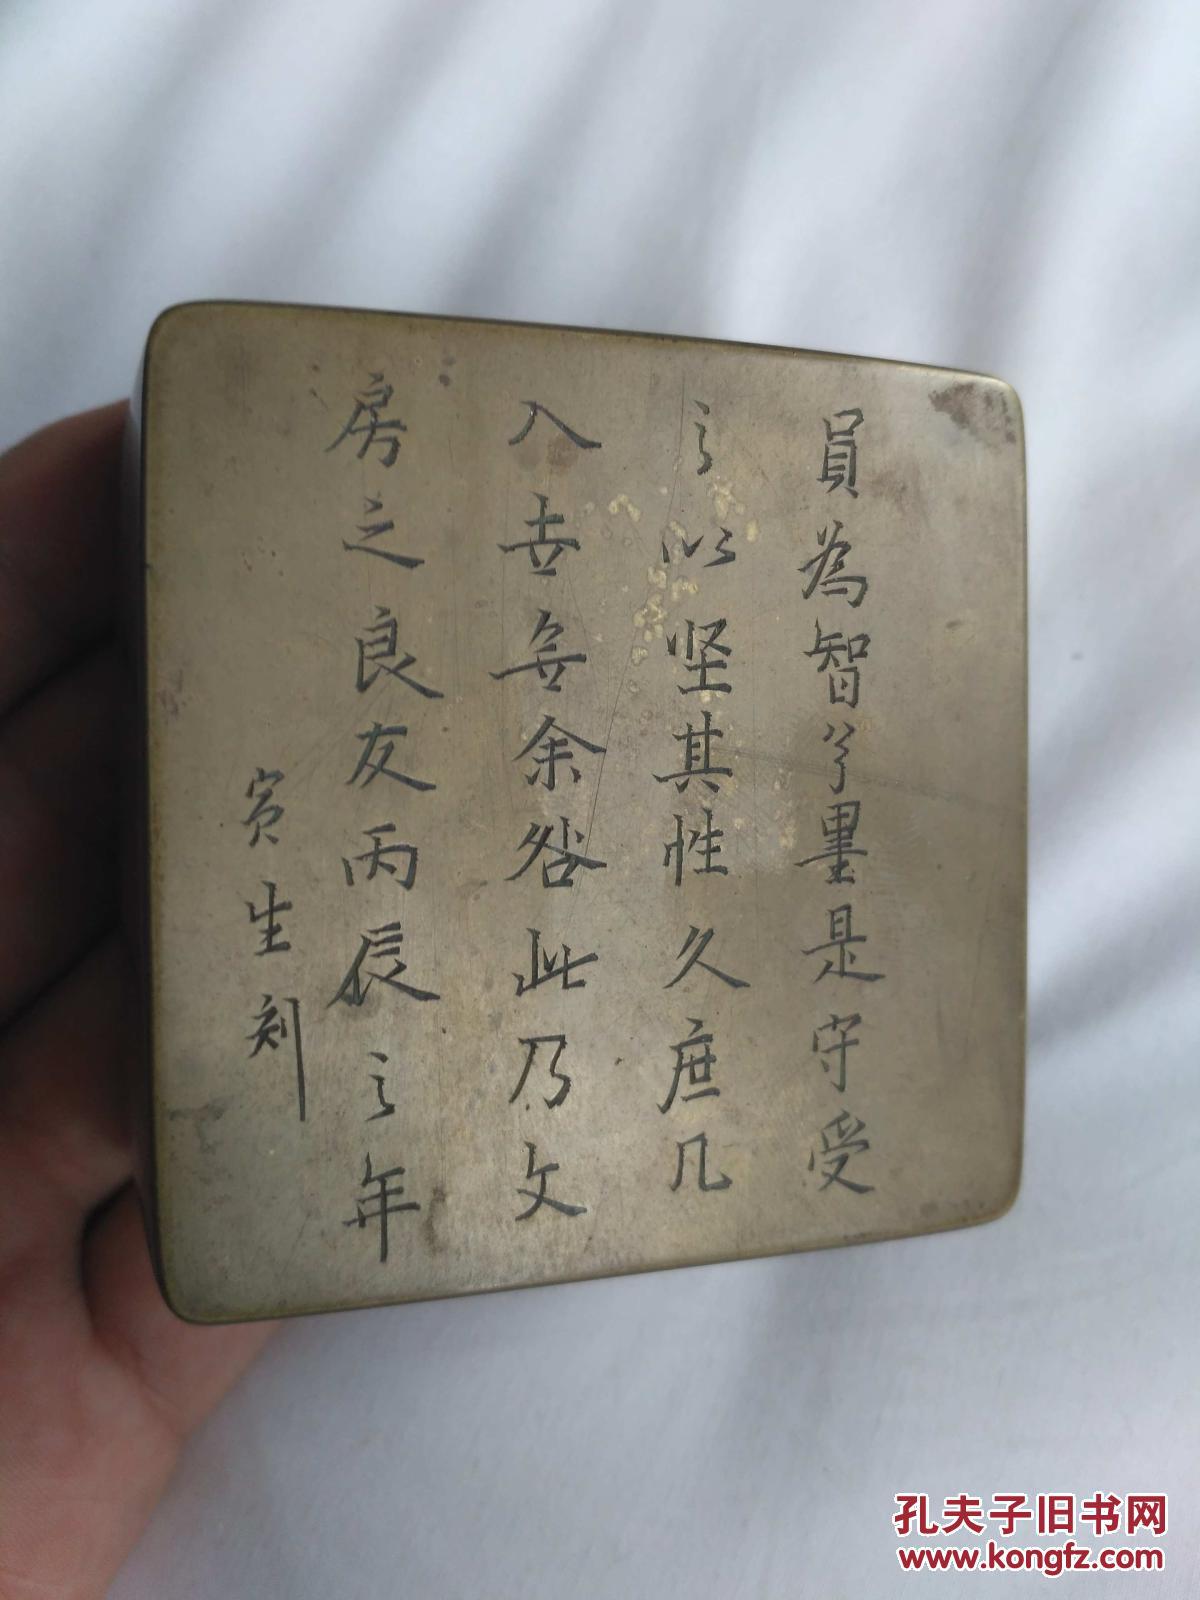 員為智兮墨是守受
之以坚其性久庶几
入世无余咎此乃文
房之良友丙辰之年
寅生刻
孔夫子旧书网
www.kongfz.com